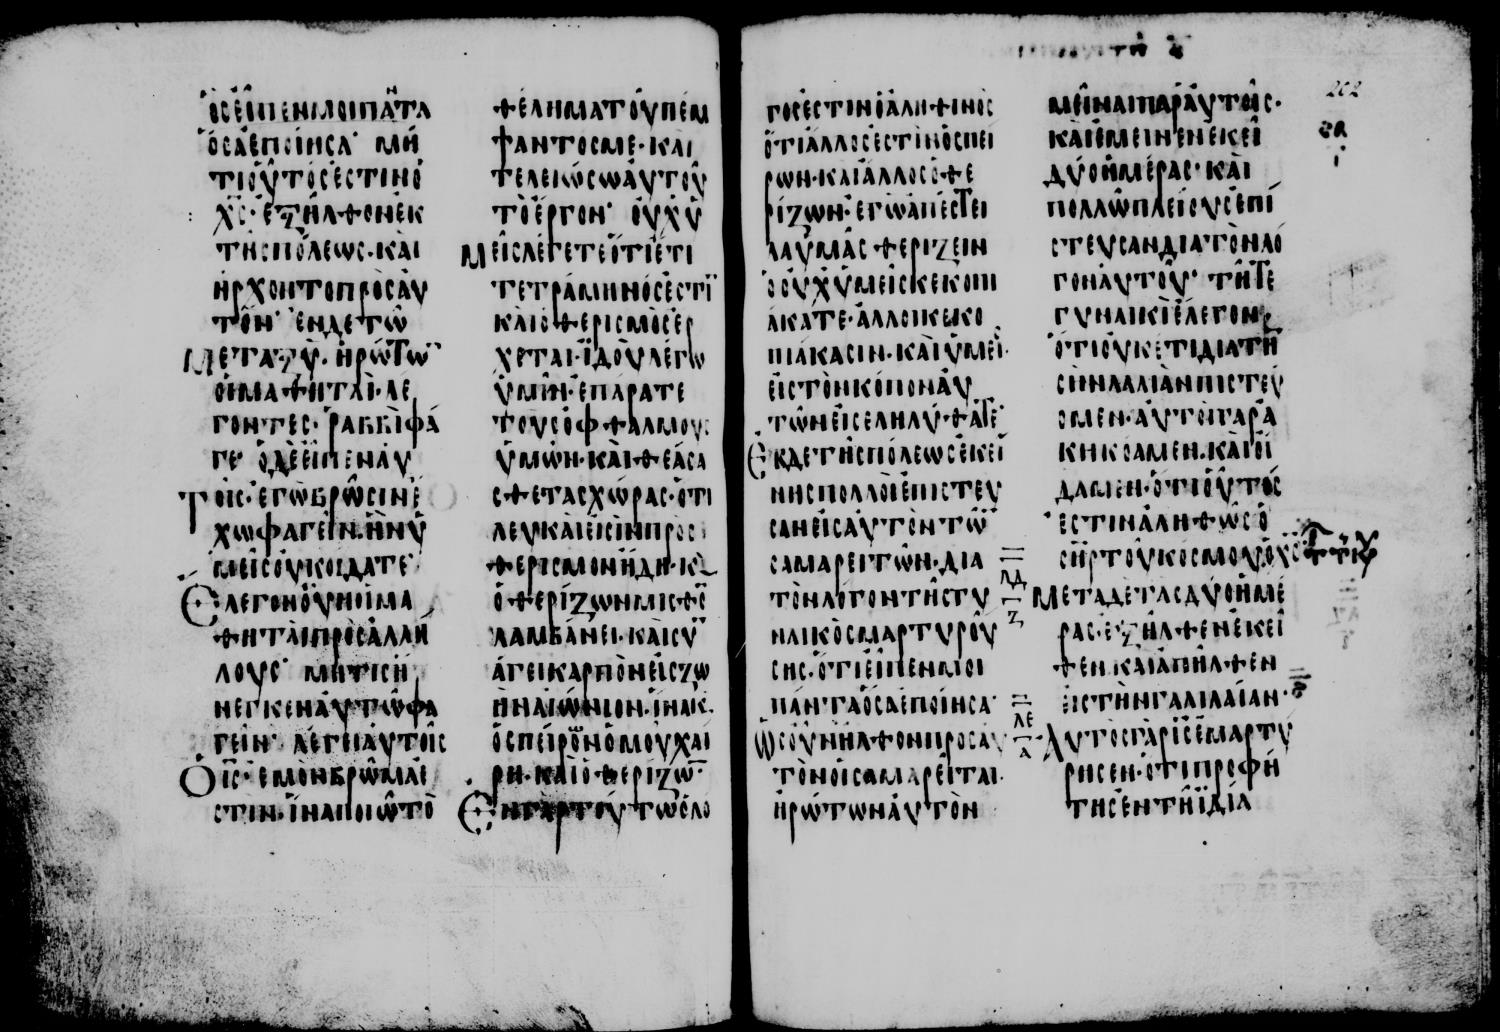 ὃς εἶπεν μοι πάντα
ὅσα ἐποίησα· μή
τι οὗτος ἐστιν ὁ
χς· ἐξῆλθον ἐκ
τῆς πόλεως· καὶ
ἤρχοντο πρὸς αὐ
τόν· ἐν δε τῶ
μεταξὺ· ἠρώτων
οἱ μαθηταὶ· λέ
γοντες· ῥαββὶ φά
γε· ὁ δὲ εἶπεν αὐ
τοῖς· ἐγὼ βρῶσιν ἔ
χω φαγεῖν· ἣν ὑ
μεῖς οὐκ οἴδατε·
Ἔλεγον οὖν οἱ μα
θηταὶ πρὸς ἀλλή
λους· μήτις ἤ
νεγκεν αὐτῶ φα
γεῖν· λέγει αὐτοῖς
ὁ ις· ἐμὸν βρῶμά ἐ
στιν· ἵνα ποιῶ τὸ
θέλημα τοῦ πέμ
ψαντος με· καὶ
τελειώσω αὐτοῦ
τὸ ἔργον· οὐχ ὑ
μεῖς λέγετε ὅτι ἔτι
τετράμηνός ἐστι
καὶ ὁ θερισμὸς ἔρ
χεται· ἰδοὺ λέγω
ὑμῖν· ἐπάρατε
τοὺς ὀφθαλμοὺς
ὑμῶν· καὶ θεάσα
σθε τὰς χώρας· ὅτι
λευκαὶ εἰσὶν πρὸς
θερισμὸν ἤδη· κὶ
ὁ θερίζων μισθὸ
λαμβάνει· καὶ συ
άγει καρπὸν εἰς ζω
ὴν αἰώνιον· ἵνα κ
ὁ σπείρων ὁμοῦ χαί
ρη· καὶ ὁ θερίζων·
Ἐν γὰρ τούτω ὁ λό
γος ἐστὶν ὁ ἀληθινὸς
ὅτι ἄλλος ἐστὶν ὁ σπεί
ρων· καὶ ἄλλος ὁ θε
ρίζων· ἐγὼ ἀπέστει
λα ὑμᾶς θερίζειν
ὃ οὐχ ὑμεῖς κεκοπι
άκατε· ἄλλοι κεκο
πιάκασιν· καὶ ὑμεῖς
εἰς τὸν κόπον αὐ
τῶν εἰσεληλύθατε·
Ἐκ δε τῆς πόλεως ἐκεί
νης πολλοὶ ἐπίστευ
σαν εἰς αὐτὸν τῶν
σαμαρειτῶν· διὰ
τὸν λόγον τῆς γυ
ναικὸς μαρτυρού
σης· ὅτι εἶπεν μοι
πάντα ὅσα ἐποίησα·
Ὡς οὖν ἦλθον πρὸς αὐ
τὸν οἱ σαμαρεῖται·
ἠρώτων αὐτὸν
μεῖναι παρ' αὐτοῖς·
καὶ ἔμεινεν ἐκεῖ
δύο ἡμέρας· καὶ
πολλῶ πλείους ἐπί
στευσαν διὰ τὸν λό
γον αὐτοῦ· τῆ τε
γυναικὶ ἔλεγον·
ὅτι οὐκέτι διὰ τὴν
σὴν λαλιὰν πιστεύ
ομεν· αὐτοὶ γὰρ ἀ
κηκόαμεν· καὶ οἴ
δαμεν· ὅτι οὗτός
ἐστιν ἀληθῶς ὁ
σὴρ τοῦ κόσμου ὁ χς
Μετὰ δὲ τὰς δύο ἡμέ
ρας· ἐξῆλθεν ἐκεῖ
θεν· καὶ ἀπῆλθεν
εἰς τὴν γαλιλαίαν·
Αὐτὸς γὰρ ις ἐμαρτύ
ρησεν· ὅτι προφή
της ἐν τῆ ἰδία
202
λδ
ζ
λε
α